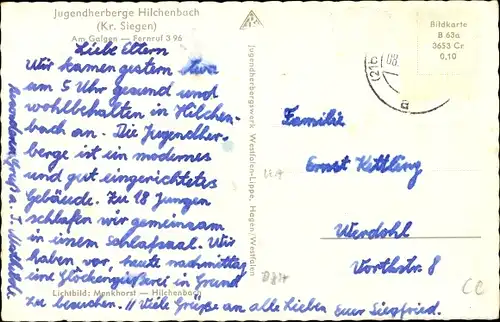 Jugendherberge Hilchenbach
(Kr. Siegen)
Am Galgen — Fernruf 3 96
Liebe Eltern
Wir kamen gestern etwa
am 5 Uhr gesund und
wohlbehalten in Hilchen-
bach an. Die Jugendher-
berge ist ein modernes
und gut eingerichtetes
Gebäude. Zu 18 Jungen
schlafen wir gemeinsam
in einem Schlafsaal. Wir
haben vor, heute nachmittag
eine Glockengießerei in
zu besuchen. Viele Grüße an alle Lieben Euer Siegfried.
Lichtbild: Menkhorst — Hilchenbach
Jugendherbergswerk Westfalen-Lippe, Hagen/Westfalen
Bildkarte
B 63a
3653 Cr
0,10
(21b)
08.
a
Familie
Ernst Kettling
Werdohl
Vorthstr 8